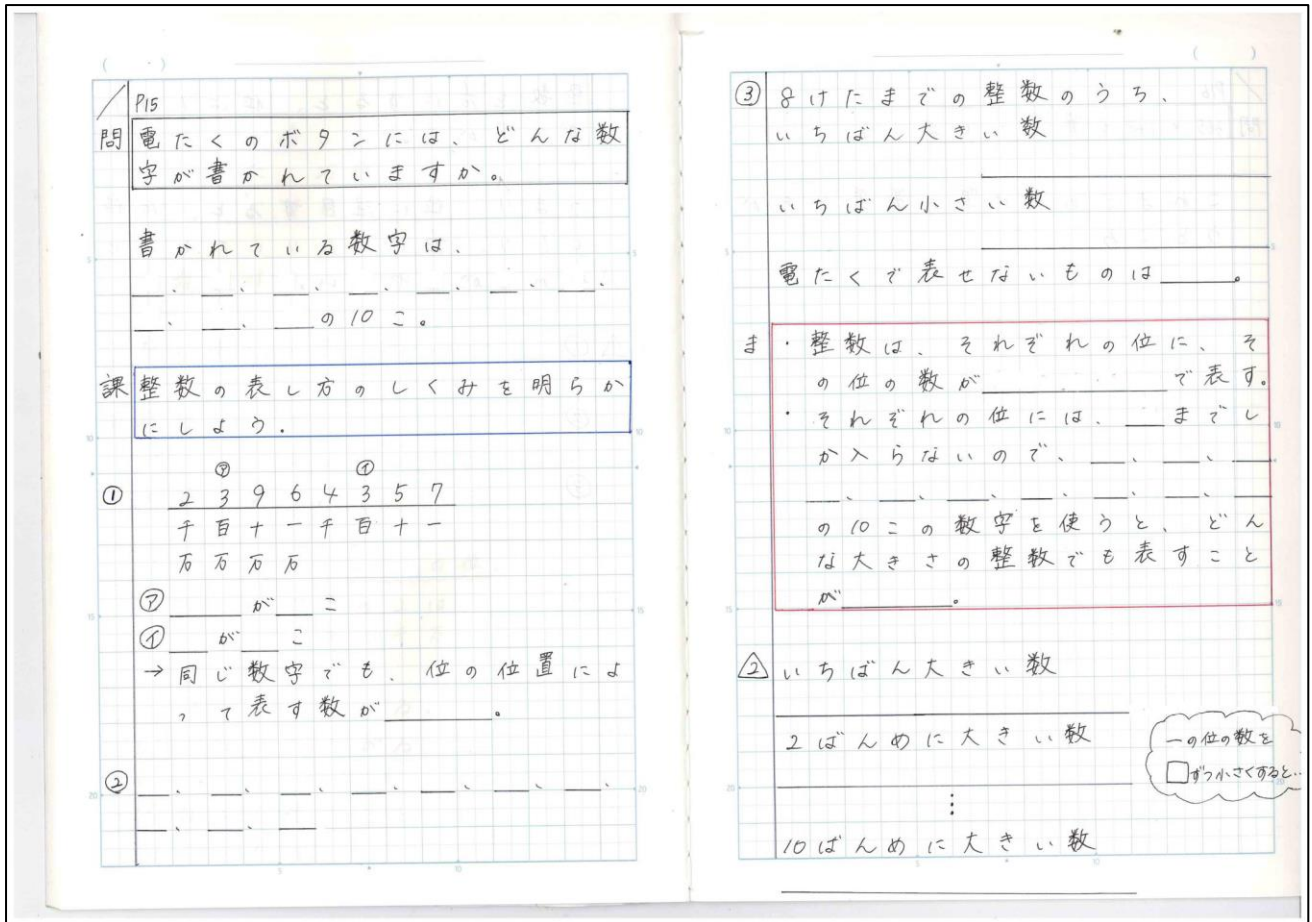 ( ・ )
P15
問 電たくのボタンには、どんな数
字が書かれていますか。
書かれている数字は、
__、__、__、__、__、__、__、
__、__、__の10こ。
課 整数の表し方のしくみを明らか
にしよう。
㋐ ㋑
① 2 3 9 6 4 3 5 7
千 百 十 一 千 百 十 一
万 万 万 万
㋐ ____が__こ
㋑ __が__こ
→ 同じ数字でも、位の位置によ
って表す数が______。
② __、__、__、__、__、__、__、
__、__、__
( )
③ 8けたまでの整数のうち、
いちばん大きい数
いちばん小さい数
電たくで表せないものは____。
ま ・整数は、それぞれの位に、そ
の位の数が__________で表す。
・それぞれの位には、__までし
か入らないので、__、__、__
__、__、__、__、__、__、__
の10この数字を使うと、どん
な大きさの整数でも表すこと
が______。
2 いちばん大きい数
2ばんめに大きい数
一の位の数を
□ずつ小さくすると…
⋮
10ばんめに大きい数